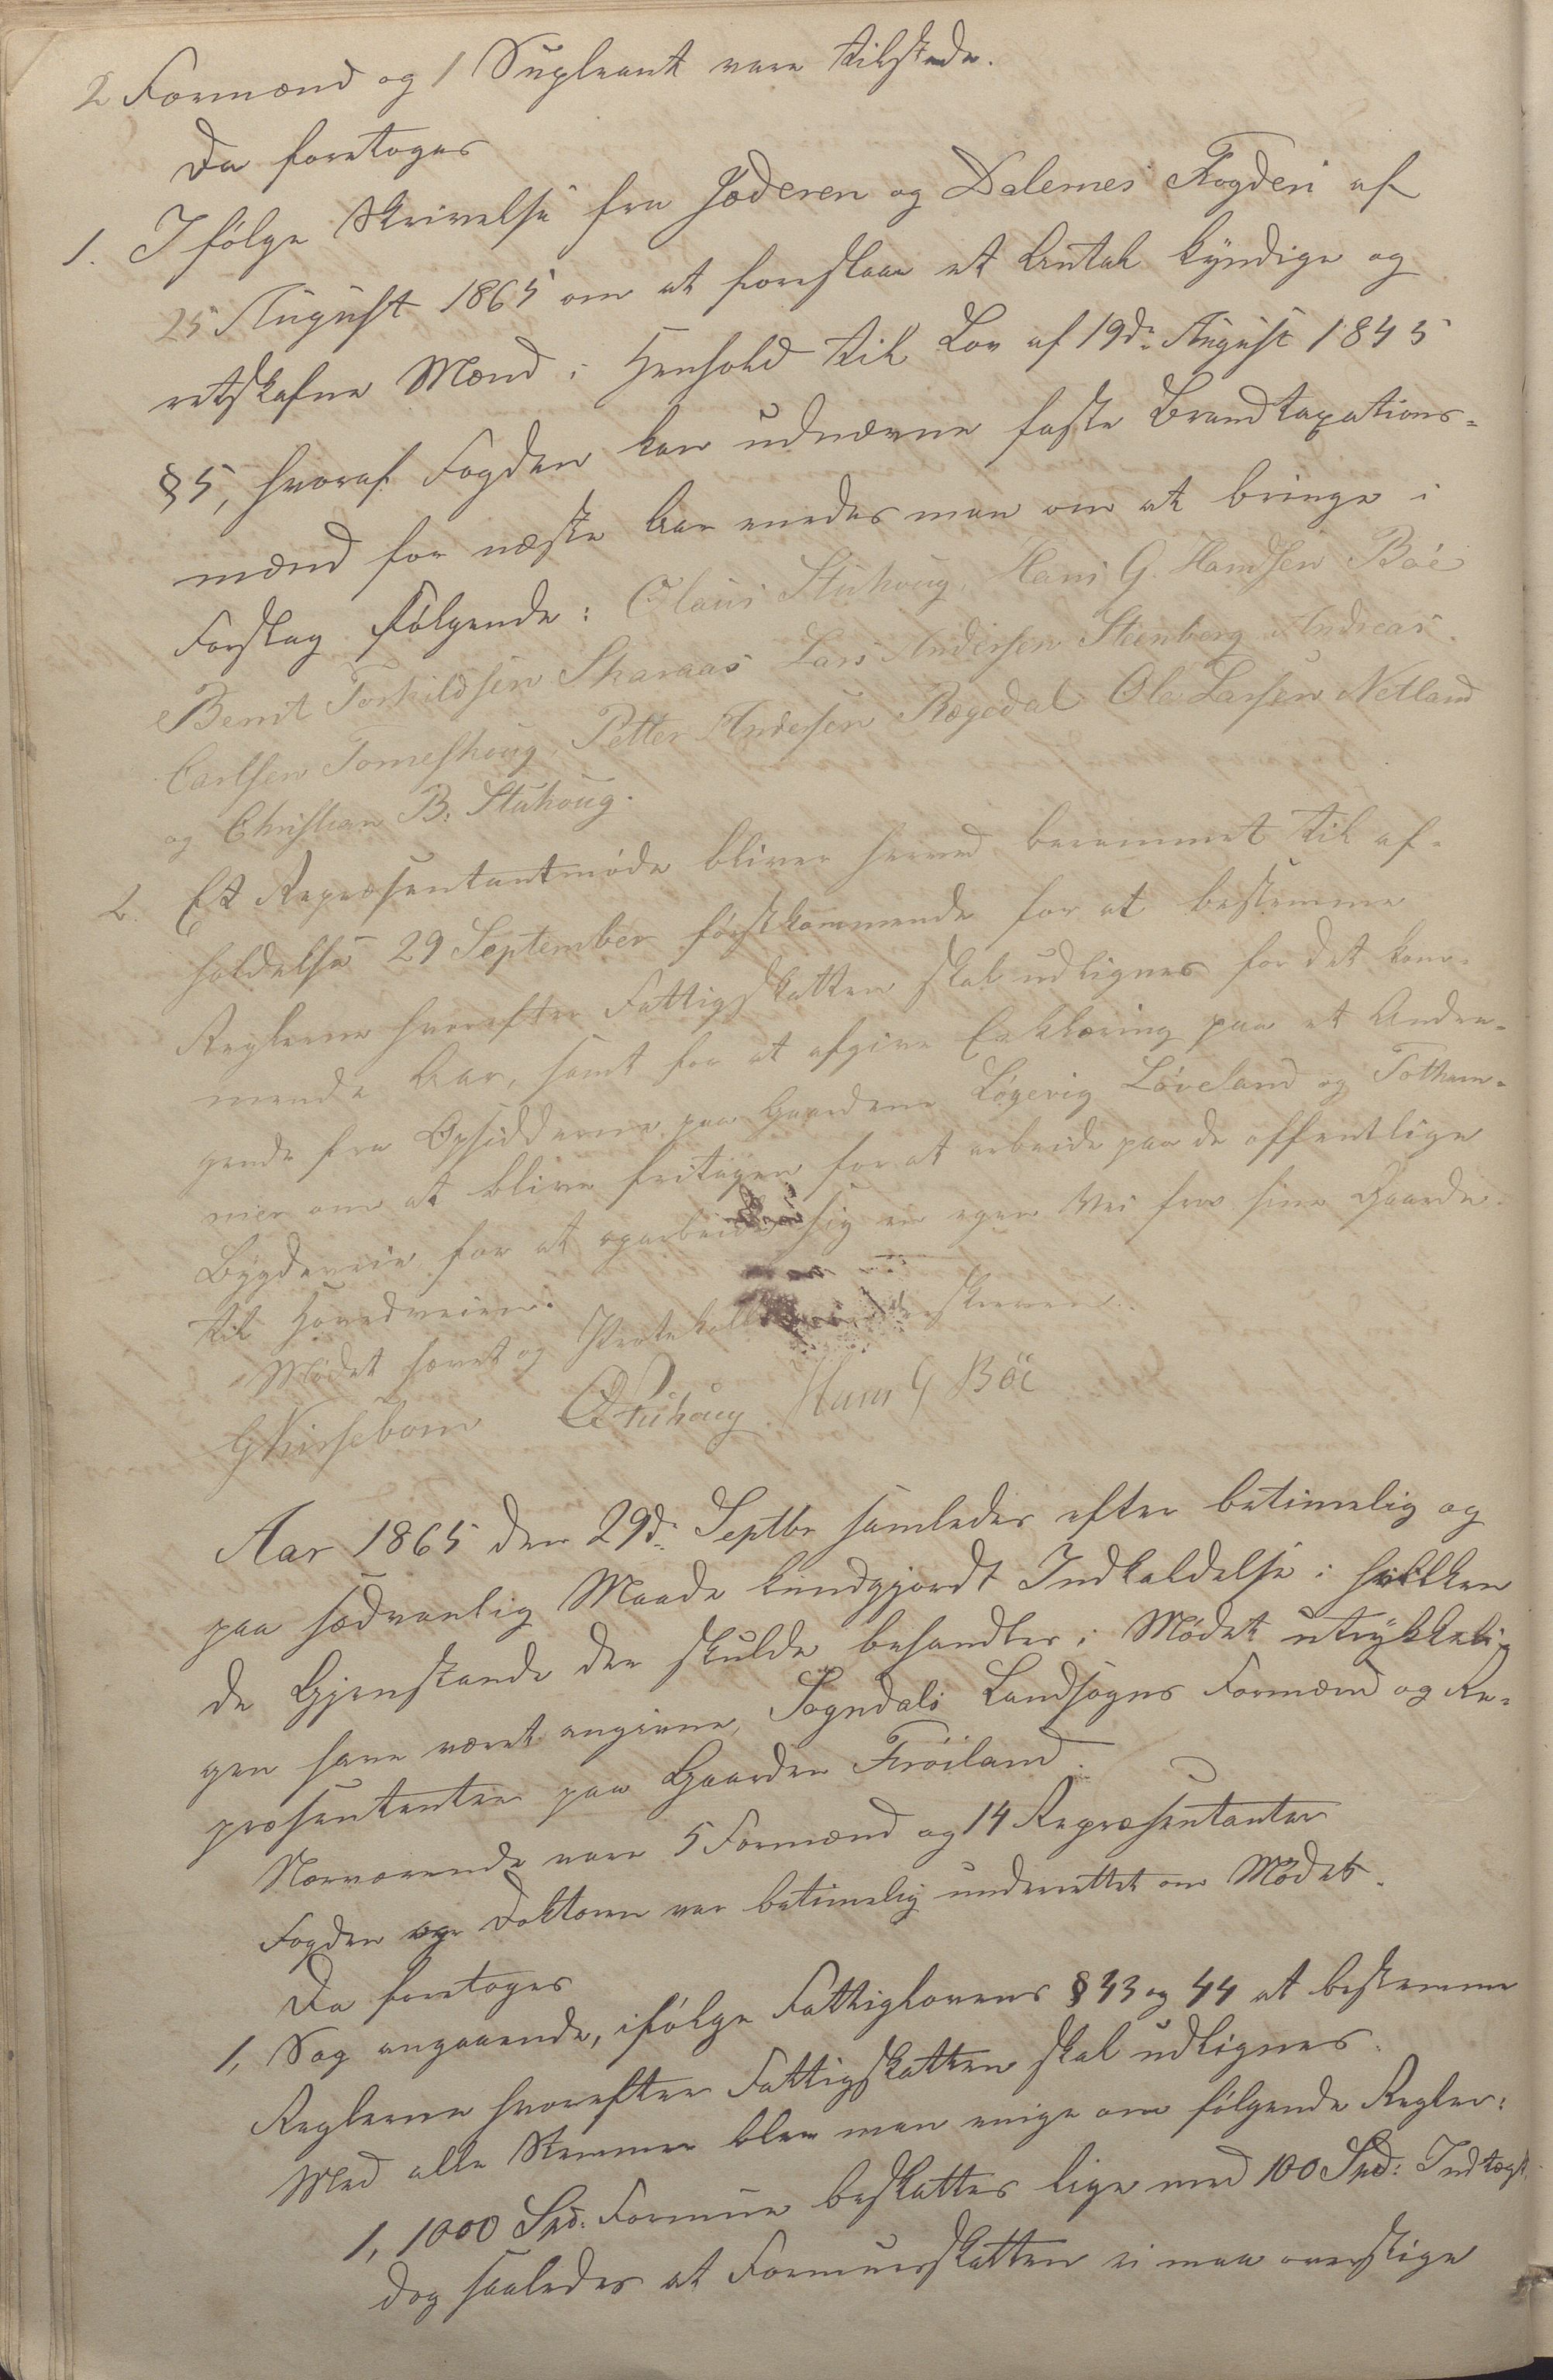 2 Formænd og 1 Supleant vare tilstede.
Da foretoges
1. Ifølge Skrivelse fra Jæderen og Dalernes Fogderi af
25 August 1865 om at foreslaae et Antal kyndige og
retskafne Mænd i Henhold til Lov af 19de August 1845
§ 5, hvoraf Fogden kan udnævne faste Brandtaxations-
mænd for næste Aar enedes man om at bringe i
Forslag følgende: Olaus Stuhoug, Hans G. Hansen Böe
Bernt Torkildsen Skaraas Lars Andersen Steenberg Andreas
Carlsen Tomeshoug, Petter Andersen Rægedal Ole Larsen Netland
og Christian B. Stuhoug.
2. Et Repræsentantmøde bliver herved berammet til af-
holdelse 29 September førstkommende for at bestemme
Reglerne hvorefter Fattigskatten skal udlignes for det kom-
mende Aar, samt for at afgive Erklæring paa et Andra-
gende fra Opsidderne paa Gaardene Løgevig Løveland og Totham-
mer om at blive fritagen for at arbeide paa de offentlige
Bygdeveie for at oparbeide sig en egen Vei fra sine Gaarde
til Hovedveien.
Mødet hævet og Protokollen underskreven.
G Kirsebom O Stuhoug. Hans G Böe
Aar 1865 den 29de Septbr samledes efter betimelig og
paa sædvanlig Maade kundgjordt Indkaldelse i hvilken
de Gjenstande der skulde behandles i Mødet utrykkeli-
gen have været angivne, Sogndals Landsogns Formænd og Re-
præsententer paa Gaarden Frøiland.
Nærværende vare 5 Formænd og 14 Repræsentanter
Fogden og Doktoren var betimelig underrettet om Mødet.
Da foretoges
1, Sag angaaende, ifølge Fattiglovens § 43 og 44 at bestemme
Reglerne hvorefter Fattigskatten skal udlignes.
Med alle Stemmer blev man enige om følgende Regler:
1, 1000 Spd: Formue beskattes lige med 100 Spd: Indtægt
dog saaledes at Formuesskatten ei maa overstige